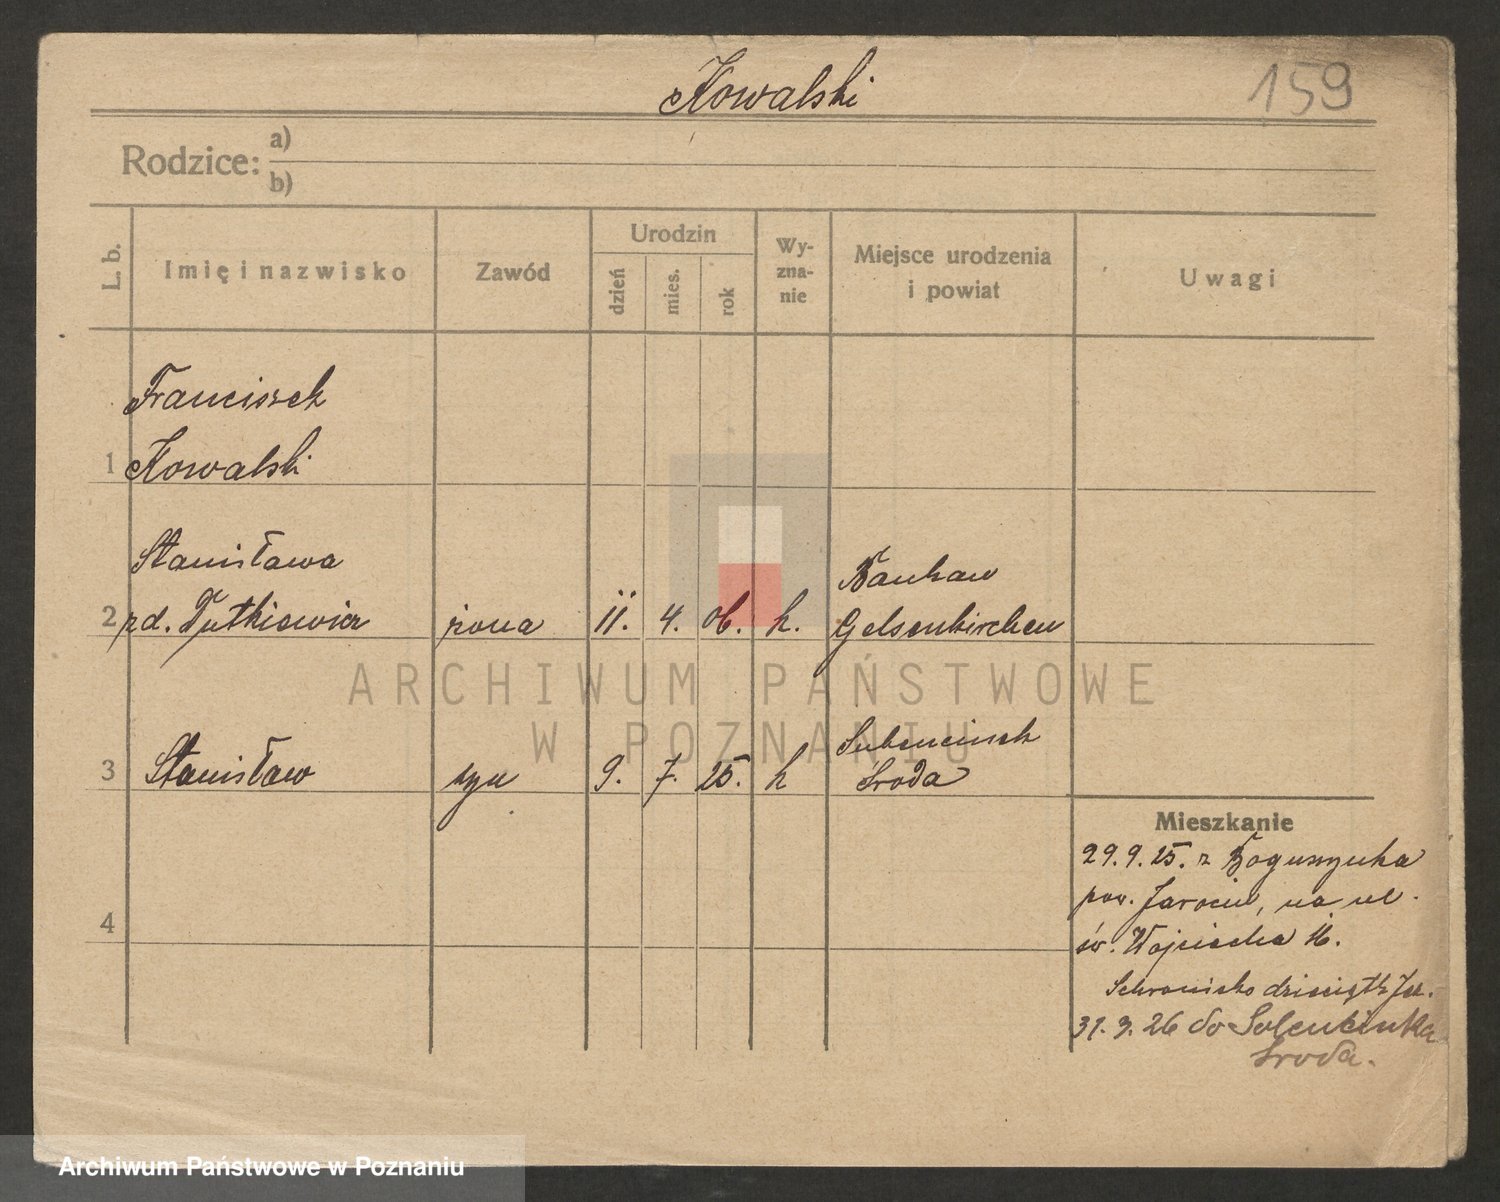 Kowalski
159
Rodzice:
a)
b)
L. b.
Imię i nazwisko
Zawód
Urodzin
dzień
mies.
rok
Wy-
zna-
nie
Miejsce urodzenia
i powiat
Uwagi
Franciszek
1 Kowalski
Stanisława
2 zd. Dutkiewicz żona 11. 4. 06. k. Gelsenkirchen
3 Stanisław syn 9. 7. 25. k
Środa
4
Mieszkanie
29.9.25. z Boguszynka
pow. Jarocin, na ul.
św. Wojciecha 16.
Schronisko dzieciątk. Jez.
31.3.26 do
Środa.
ARCHIWUM PAŃSTWOWE
W POZNANIU
Archiwum Państwowe w Poznaniu